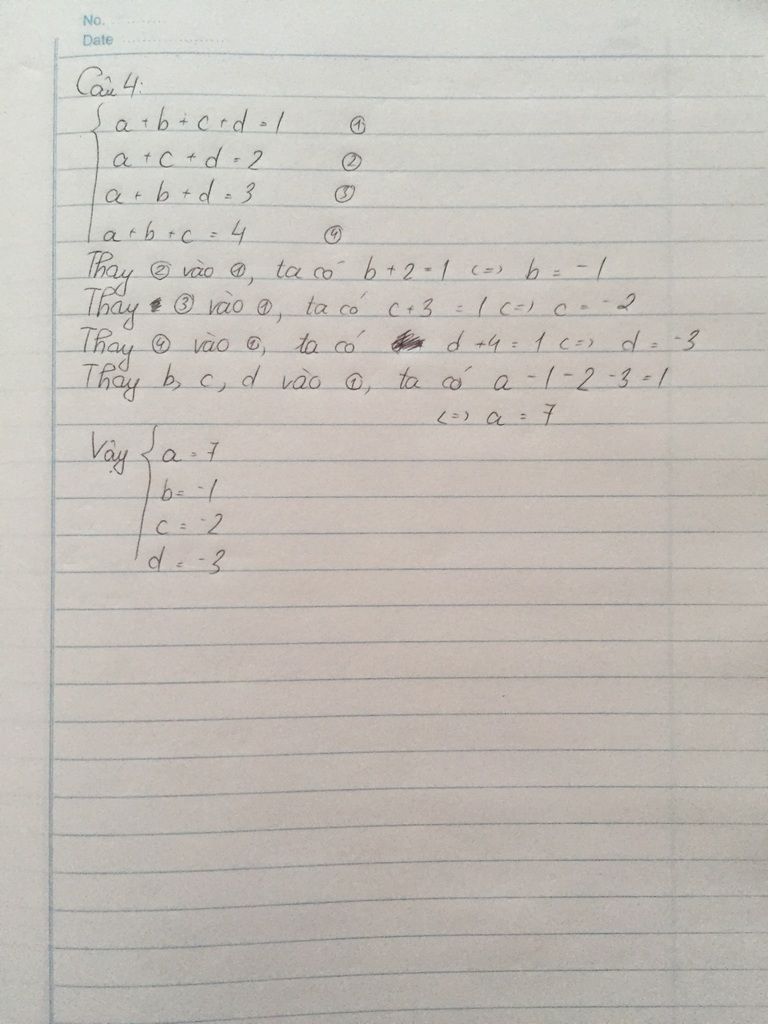 No.
Date
Câu 4:
a + b + c + d = 1 ①
a + c + d = 2 ②
a + b + d = 3 ③
a + b + c = 4 ④
Thay ② vào ①, ta có b + 2 = 1 <=> b = -1
Thay ③ vào ①, ta có c + 3 = 1 <=> c = -2
Thay ④ vào ①, ta có d + 4 = 1 <=> d = -3
Thay b, c, d vào ①, ta có a - 1 - 2 - 3 = 1
<=> a = 7
Vậy { a = 7
b = -1
c = -2
d = -3